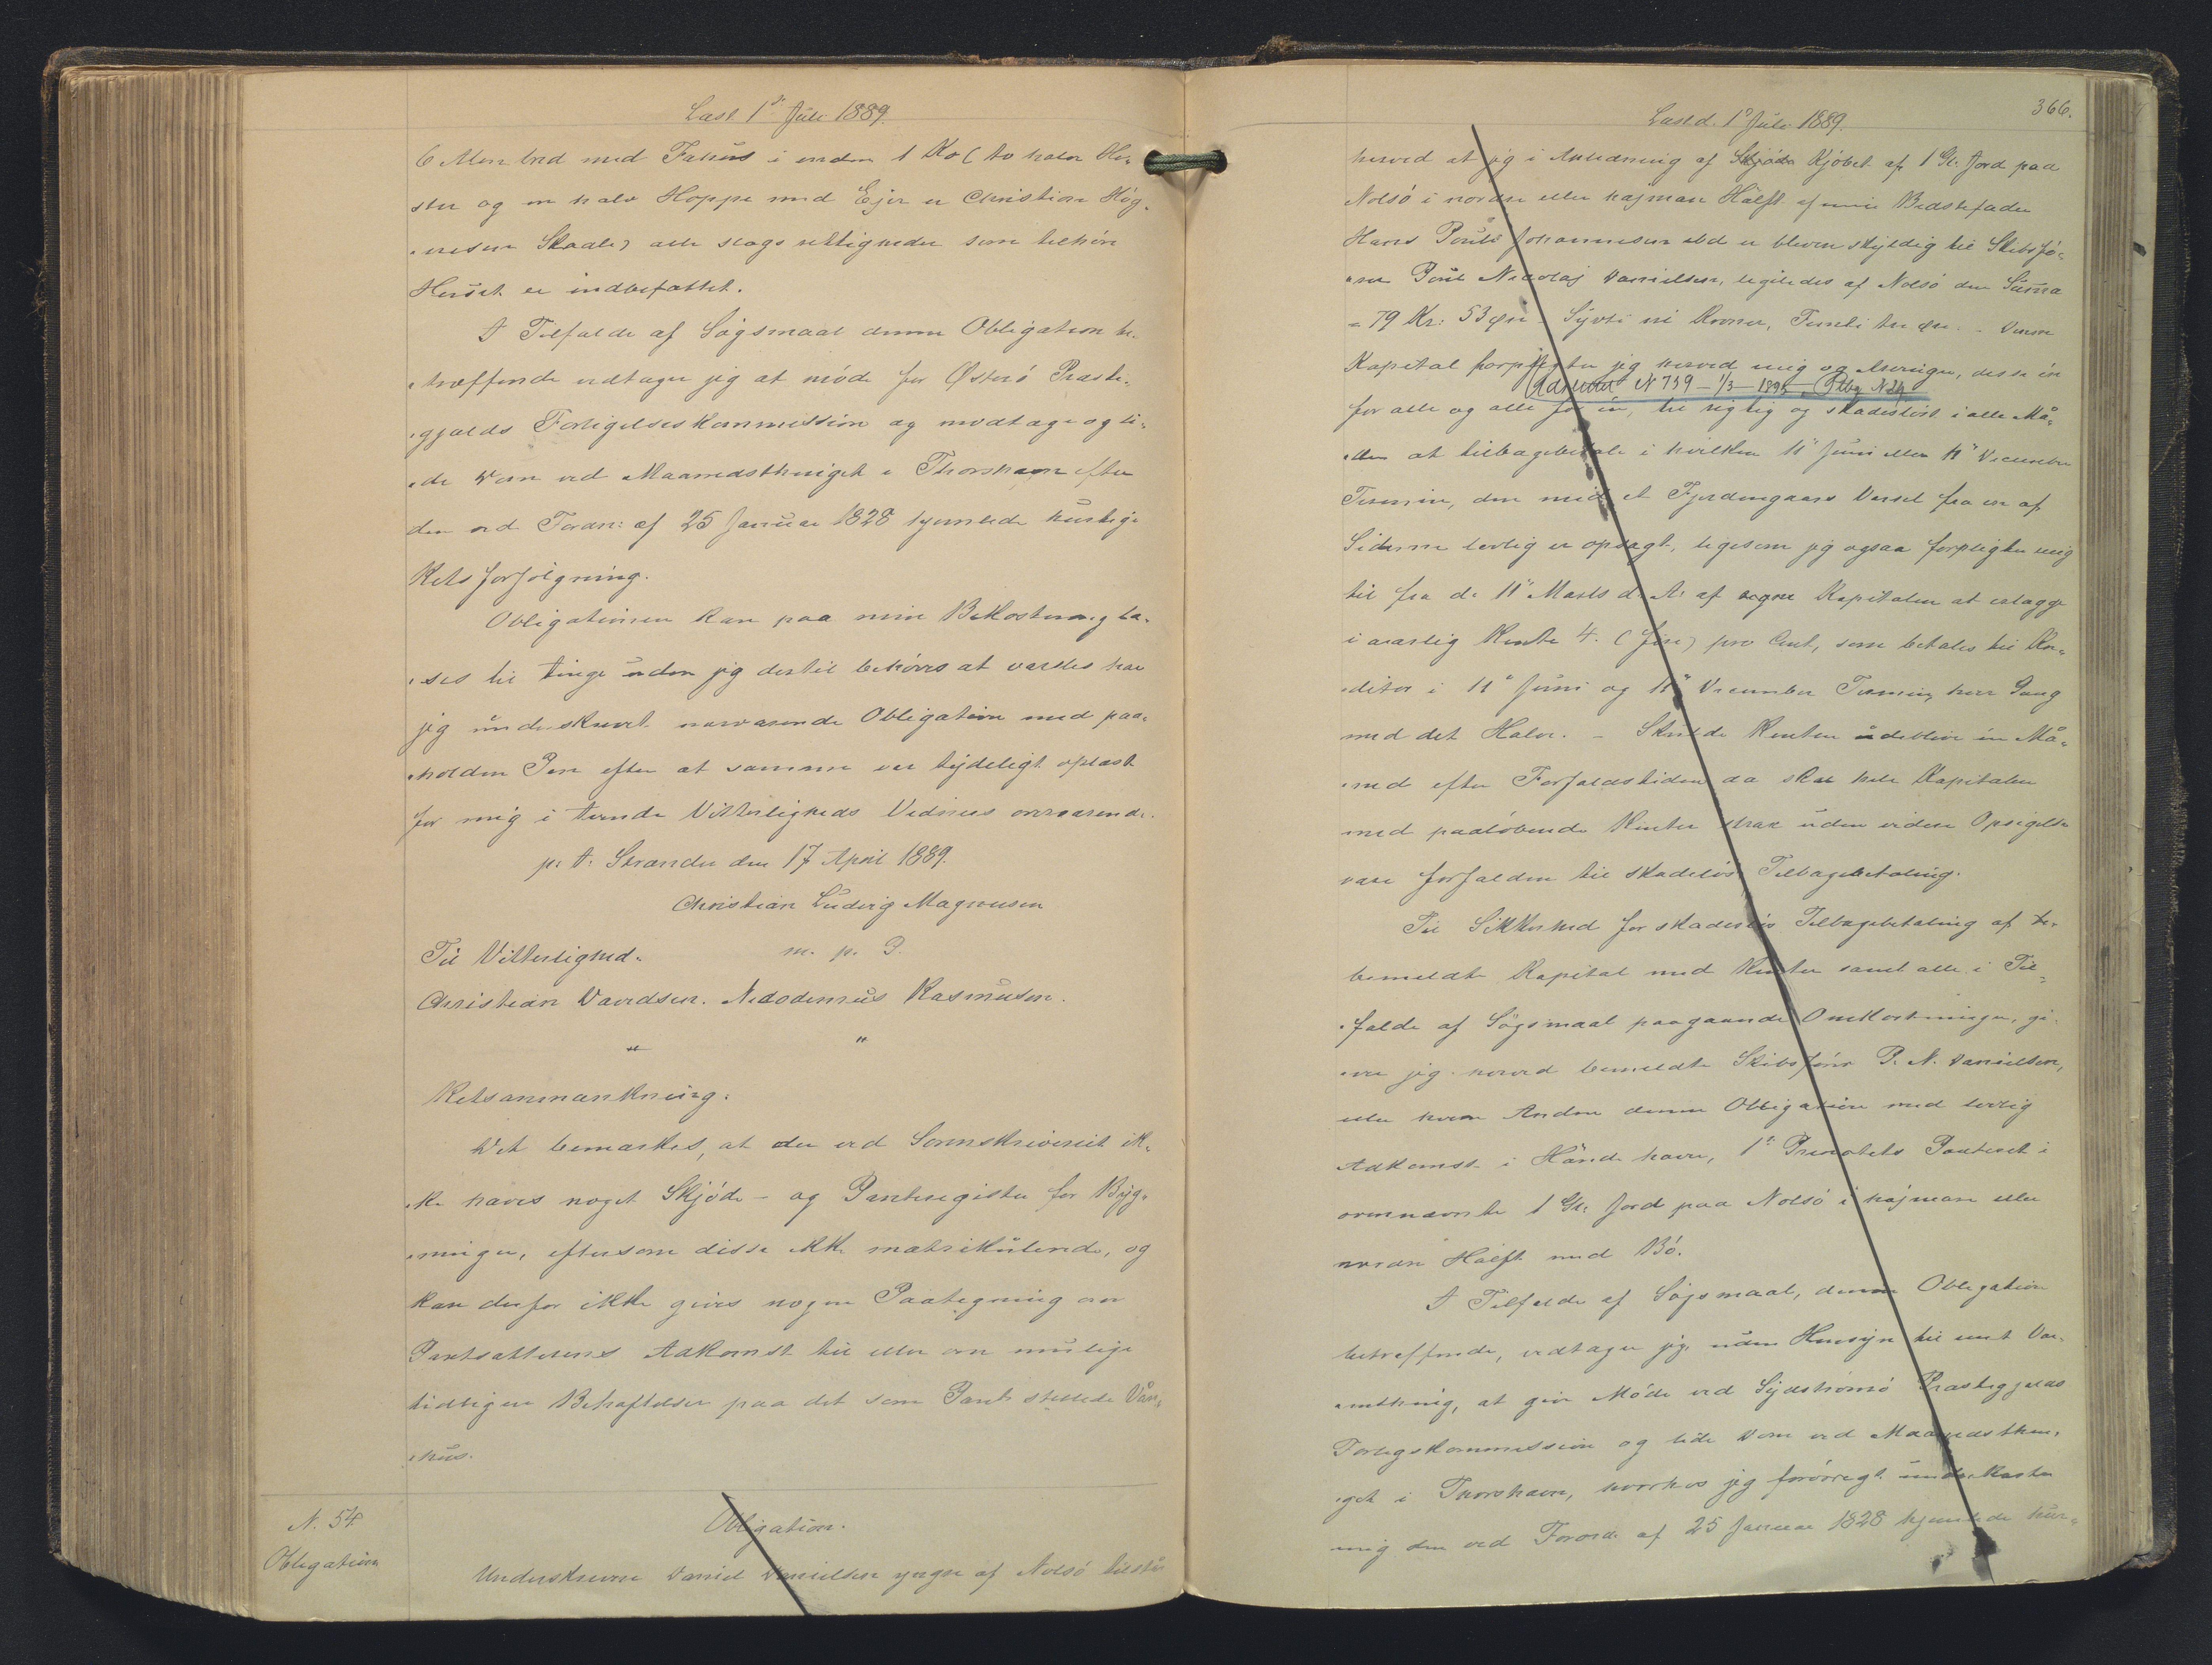 Læst 1ste Juli 1889.
6 Alen bred med Fahus i enden 1 Ko (to halve Hø-
ster og en halv Hoppe med Ejer er Christian Høg-
nesen Skaale) alle slags rettigheder som tilhöre
Huset er indbefattet.
I Tilfælde af Sögsmaal denne Obligation be-
træffende vedtager jeg at möde for Østerö Præste-
gjælds Forligelseskommission og modtage og li-
de Dom ved Maanedsthinget i Thorshavn efter
den ved Forordn: af 25 Januar 1828 hjemlede hurtige
Retsforfölgning.
Obligationen kan paa min Bekostning læ-
ses til tinge uden jeg dertil behöves at varsles har
jeg underskrevet nærværende Obligation med paa-
holden Pen efter at samme var tydeligt oplæst
for mig i tvende Vitterligheds Vidners overværende.
p. t. Strænder den 17 April 1889.
Christian Ludvig Magnussen
Til Vitterlighed: m. p. P.
Christian Davidsen. Nicodemus Rasmussen.
" "
Retsanmærkning:
Det bemærkes, at der ved Sorenskriveriet ik-
ke haves noget Skjöde- og Panteregister for Byg-
ninger, eftersom disse ikke matrikulerede, og
kan derfor ikke gives nogen Paategning om
Pantsætterens Adkomst til eller om mulige
tidligere Behæftelser paa det som Pant stillede Vån-
hus.
N. 54
Obligation
Obligation.
Underskrevne Daniel Danielsen yngre af Nolsö tilstår
366.
Læst d. 1ste Juli 1889.
herved at jeg i Anledning af Skjöde Kjöbet af 1 Gl. Jord paa
Nolsö i nordre eller hajmare Hälft af min Bedstefader
Hans Pouli Johannesen ibd er bleven skyldig til Skibsfö-
rer Poul Nicolaj Danielsen, ligeledes af Nolsö den Summa
= 79 Kr: 53 Øre - Syvti ni Kroner, Femti tre Øre. - Denne
Kapital forpligter jeg herved mig og Arvinger, disse én
Udslettet N 739 - 1/3 - 1895 Ptbg N 24
for alle og alle for én, til rigtig og skadeslöst i alle Må-
der at tilbagebetale i hvilken 11" Juni eller 11" December
Termin, den med et Fjerdingaars Varsel fra en af
Siderne lovlig er opsagt, ligesom jeg ogsaa forpligter mig
til fra d. 11" Marts d. A. af regne Kapitalen at erlægge
i aarlig Rente 4. (fire) pro Cent, som betales til Kre-
ditor i 11" Juni og 11" December Termin, hver Gang
med det Halve. - Skulde Renten udeblive én Må-
ned efter Forfaldstiden da skal hele Kapitalen
med paalöbende Renter strax uden videre Opsigelse
være forfalden til skadeslös Tilbagebetaling.
Til Sikkerhed for skadeslös Tilbagebetaling af be-
bemeldte Kapital med Renter samt alle i Til-
fælde af Sögsmaal paagaaende Omkostninger, gi-
ver jeg herved bemeldte Skibsförer P. N. Danielsen,
eller hvem Anden denne Obligation med lovlig
Adkomst i Hænde haver, 1ste Prioritets Panteret i
ovennævnte 1 Gl. Jord paa Nolsö i hajmare eller
nordre Hälft med Bö.
I Tilfælde af Sögsmaal, denne Obligation
betreffende, vedtager jeg uden Hensyn til mit Vær-
nething, at give Möde ved Sydströmö Præstegjælds
Forligskommission og lide Dom ved Maanedsthin-
get i Thorshavn, hvorhos jeg forövrigt underkaster
mig den ved Forordn. af 25 Januar 1828 hjemlede hur-